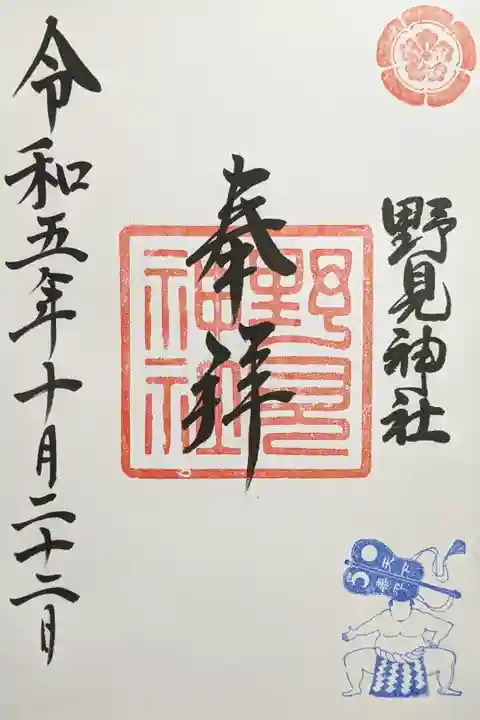 野見神社
奉拝
野見
神社
令和五年十月二十二日
天下